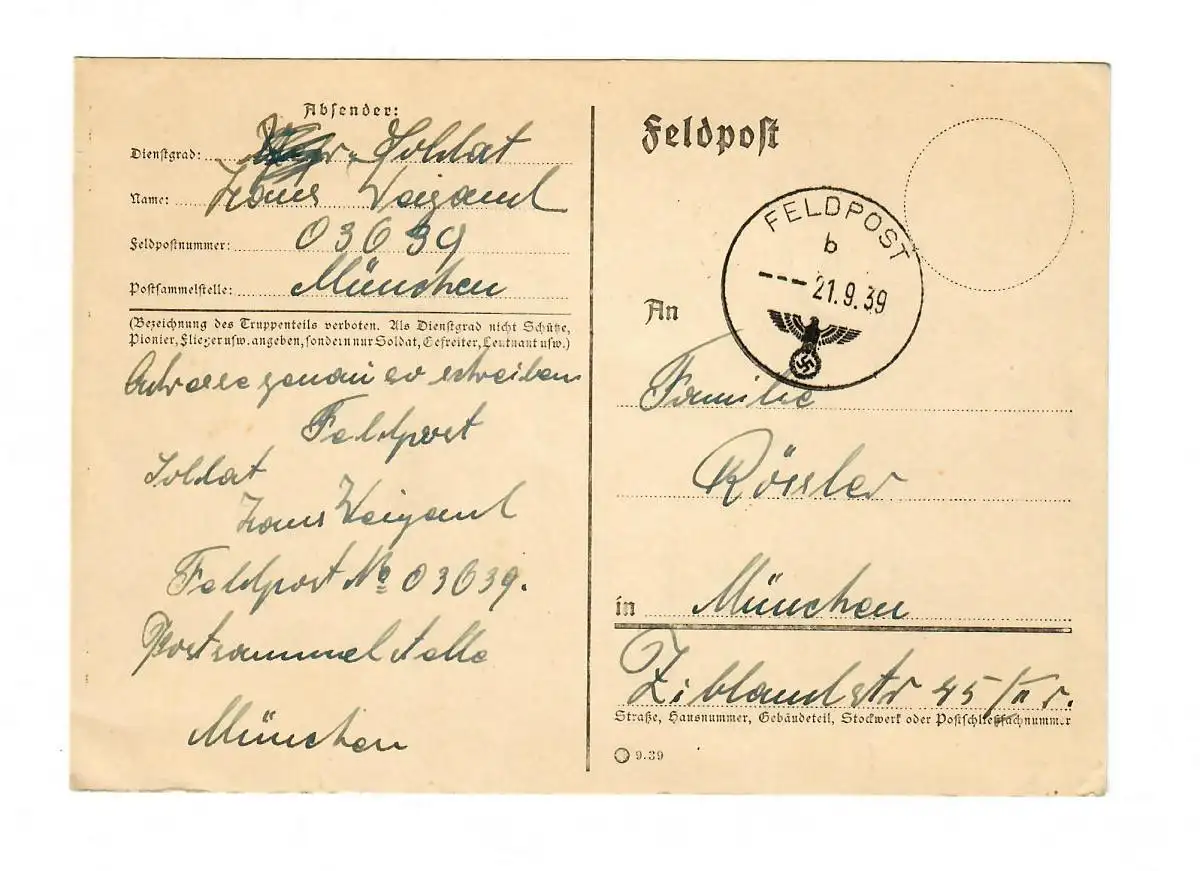 Absender:
Dienstgrad: Soldat
Name: Hans Weigand
Feldpostnummer: 03639
Postsammelstelle: München
(Bezeichnung des Truppenteils verboten. Als Dienstgrad nicht Schütze,
Pionier, Flieger usw. angeben, sondern nur Soldat, Gefreiter, Leutnant usw.)
Adresse genau so schreiben
Feldpost
Soldat
Hans Weigand
Feldpost No 03639.
Postsammelstelle
München
Feldpost
FELDPOST
b
--- 21.9.39
An
Familie
Rössler
in München
Zieblandstr 45/II r.
Straße, Hausnummer, Gebäudeteil, Stockwerk oder Postschließfachnummer
9.39